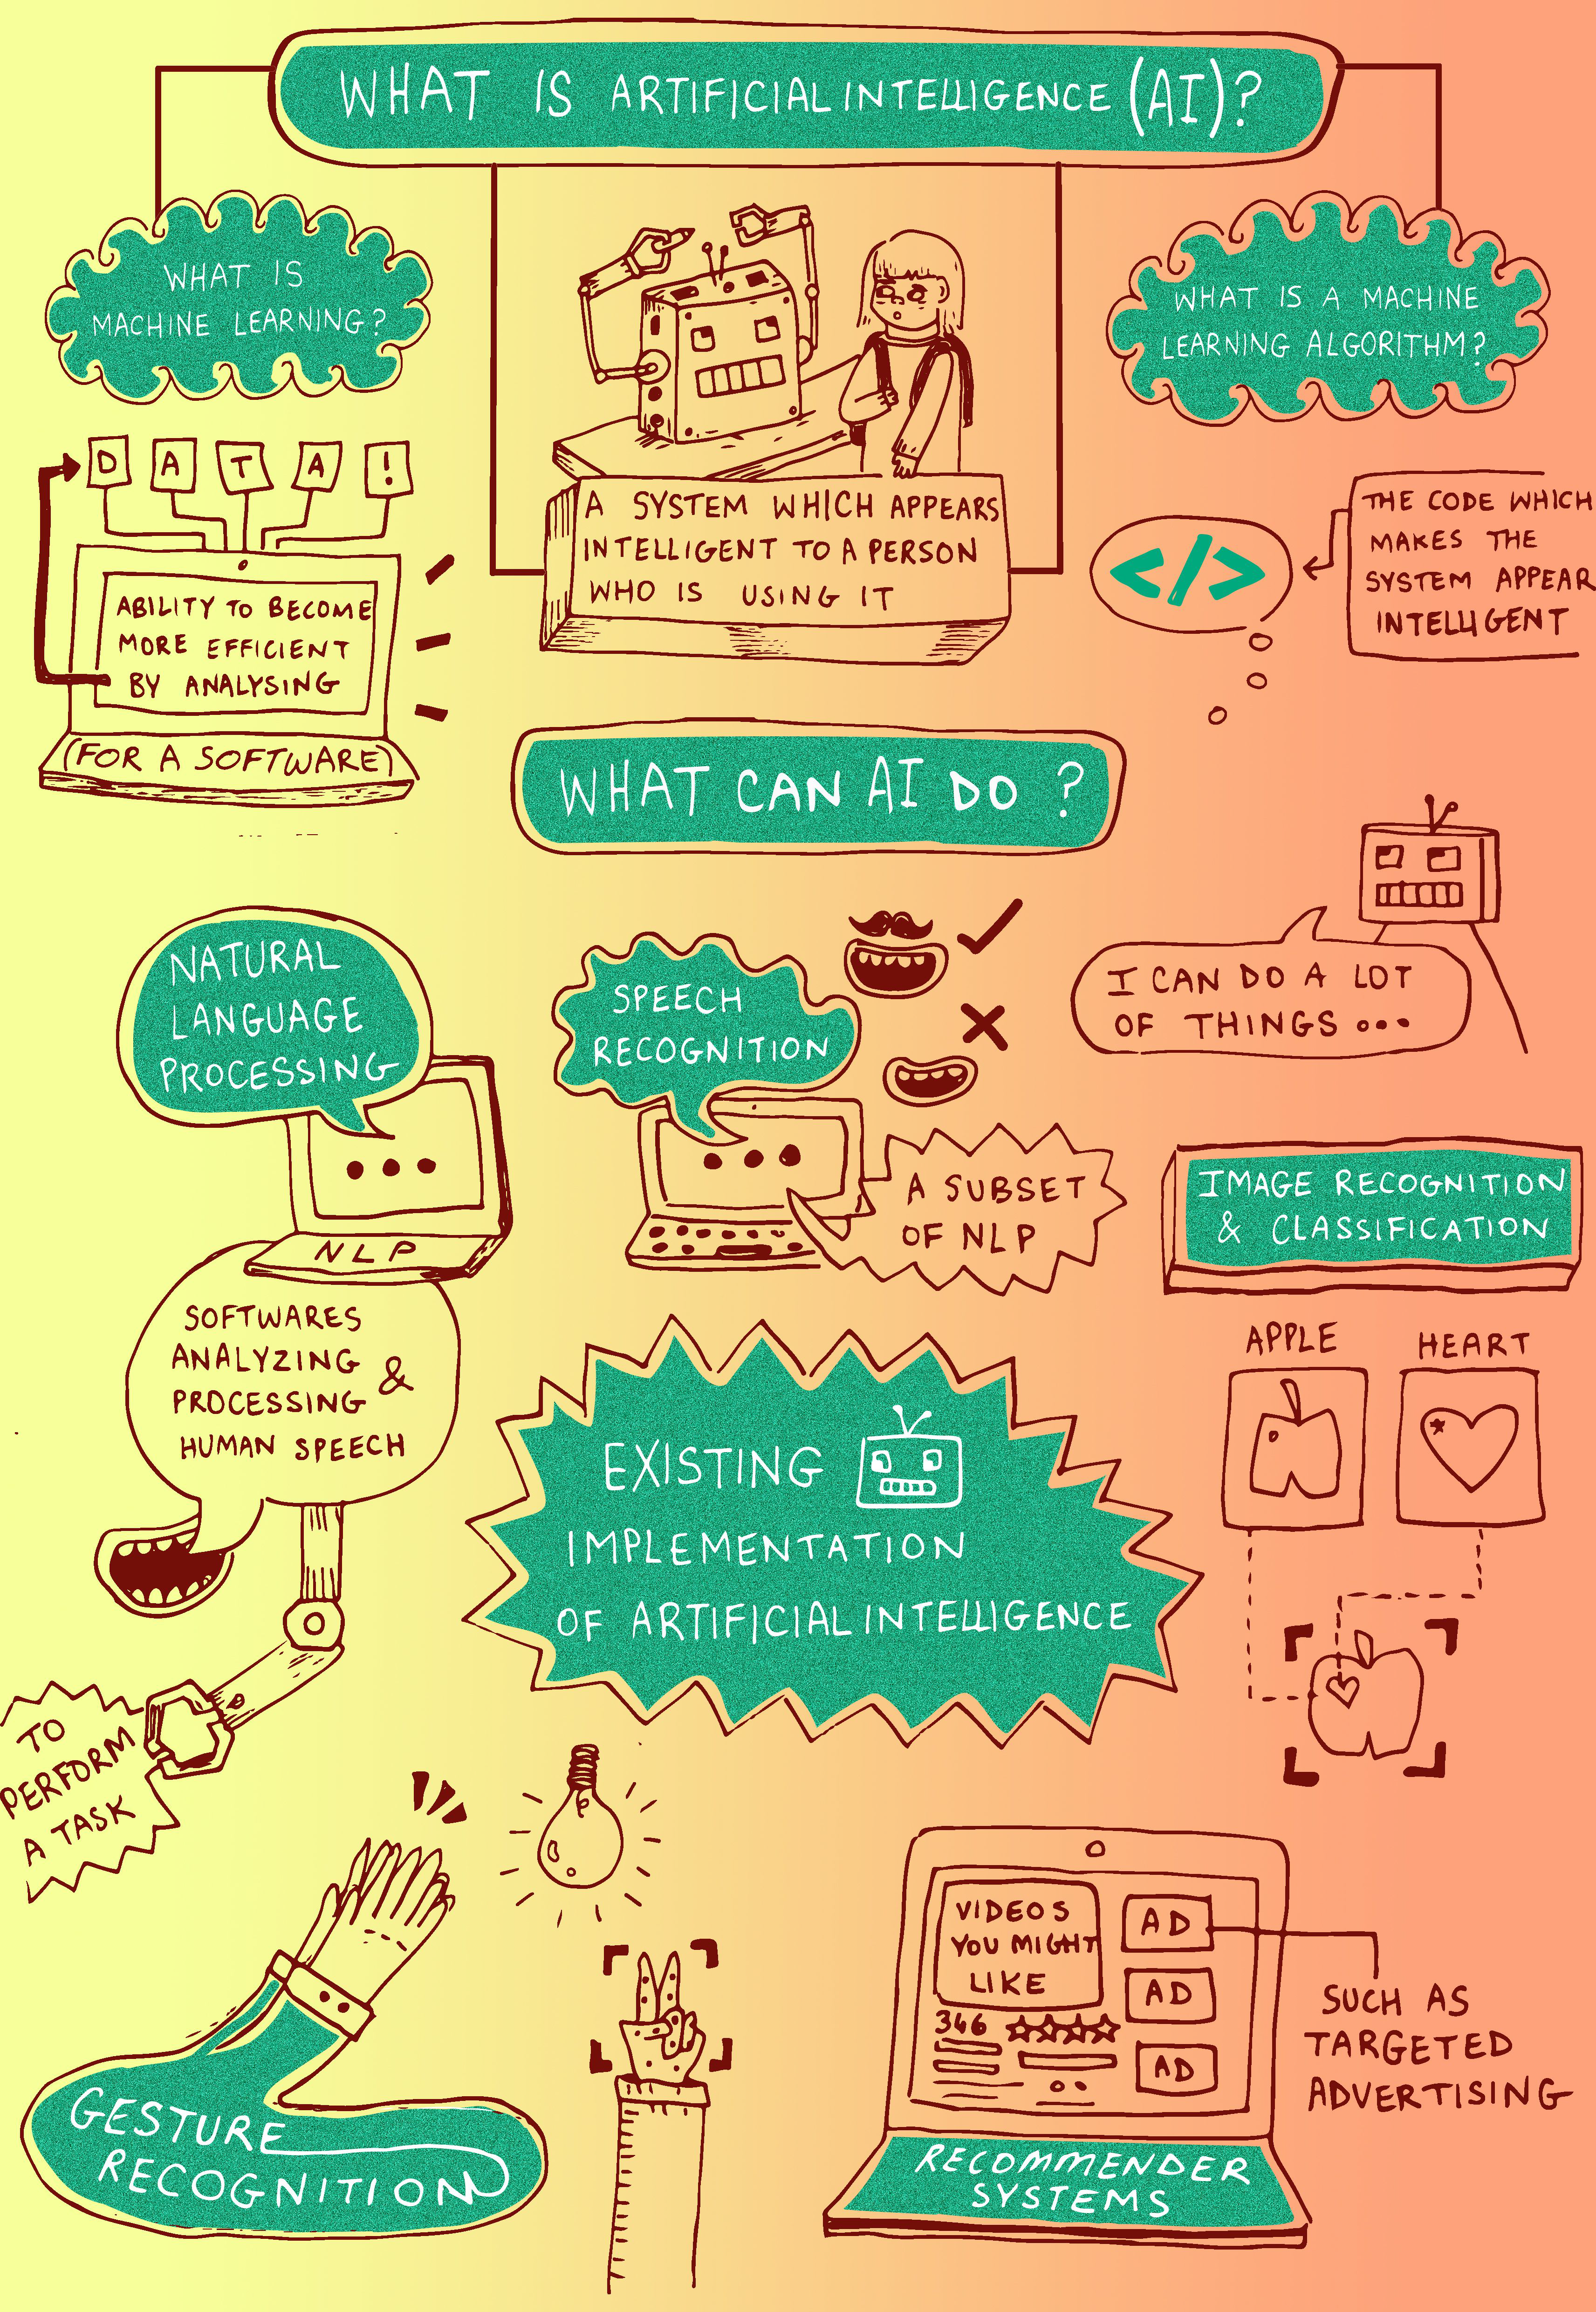 WHAT IS ARTIFICIAL INTELLIGENCE (AI)?
WHAT IS
MACHINE LEARNING?
DATA!
ABILITY TO BECOME
MORE EFFICIENT
BY ANALYSING
(FOR A SOFTWARE)
A SYSTEM WHICH APPEARS
INTELLIGENT TO A PERSON
WHO IS USING IT
WHAT IS A MACHINE
LEARNING ALGORITHM?
</>
THE CODE WHICH
MAKES THE
SYSTEM APPEAR
INTELLIGENT
WHAT CAN AI DO ?
I CAN DO A LOT
OF THINGS ...
NATURAL
LANGUAGE
PROCESSING
NLP
SOFTWARES
ANALYZING &
PROCESSING
HUMAN SPEECH
TO
PERFORM
A TASK
SPEECH
RECOGNITION
A SUBSET
OF NLP
IMAGE RECOGNITION
& CLASSIFICATION
APPLE
HEART
EXISTING
IMPLEMENTATION
OF ARTIFICIAL INTELLIGENCE
GESTURE
RECOGNITION
VIDEOS
YOU MIGHT
LIKE
346
AD
AD
AD
SUCH AS
TARGETED
ADVERTISING
RECOMMENDER
SYSTEMS